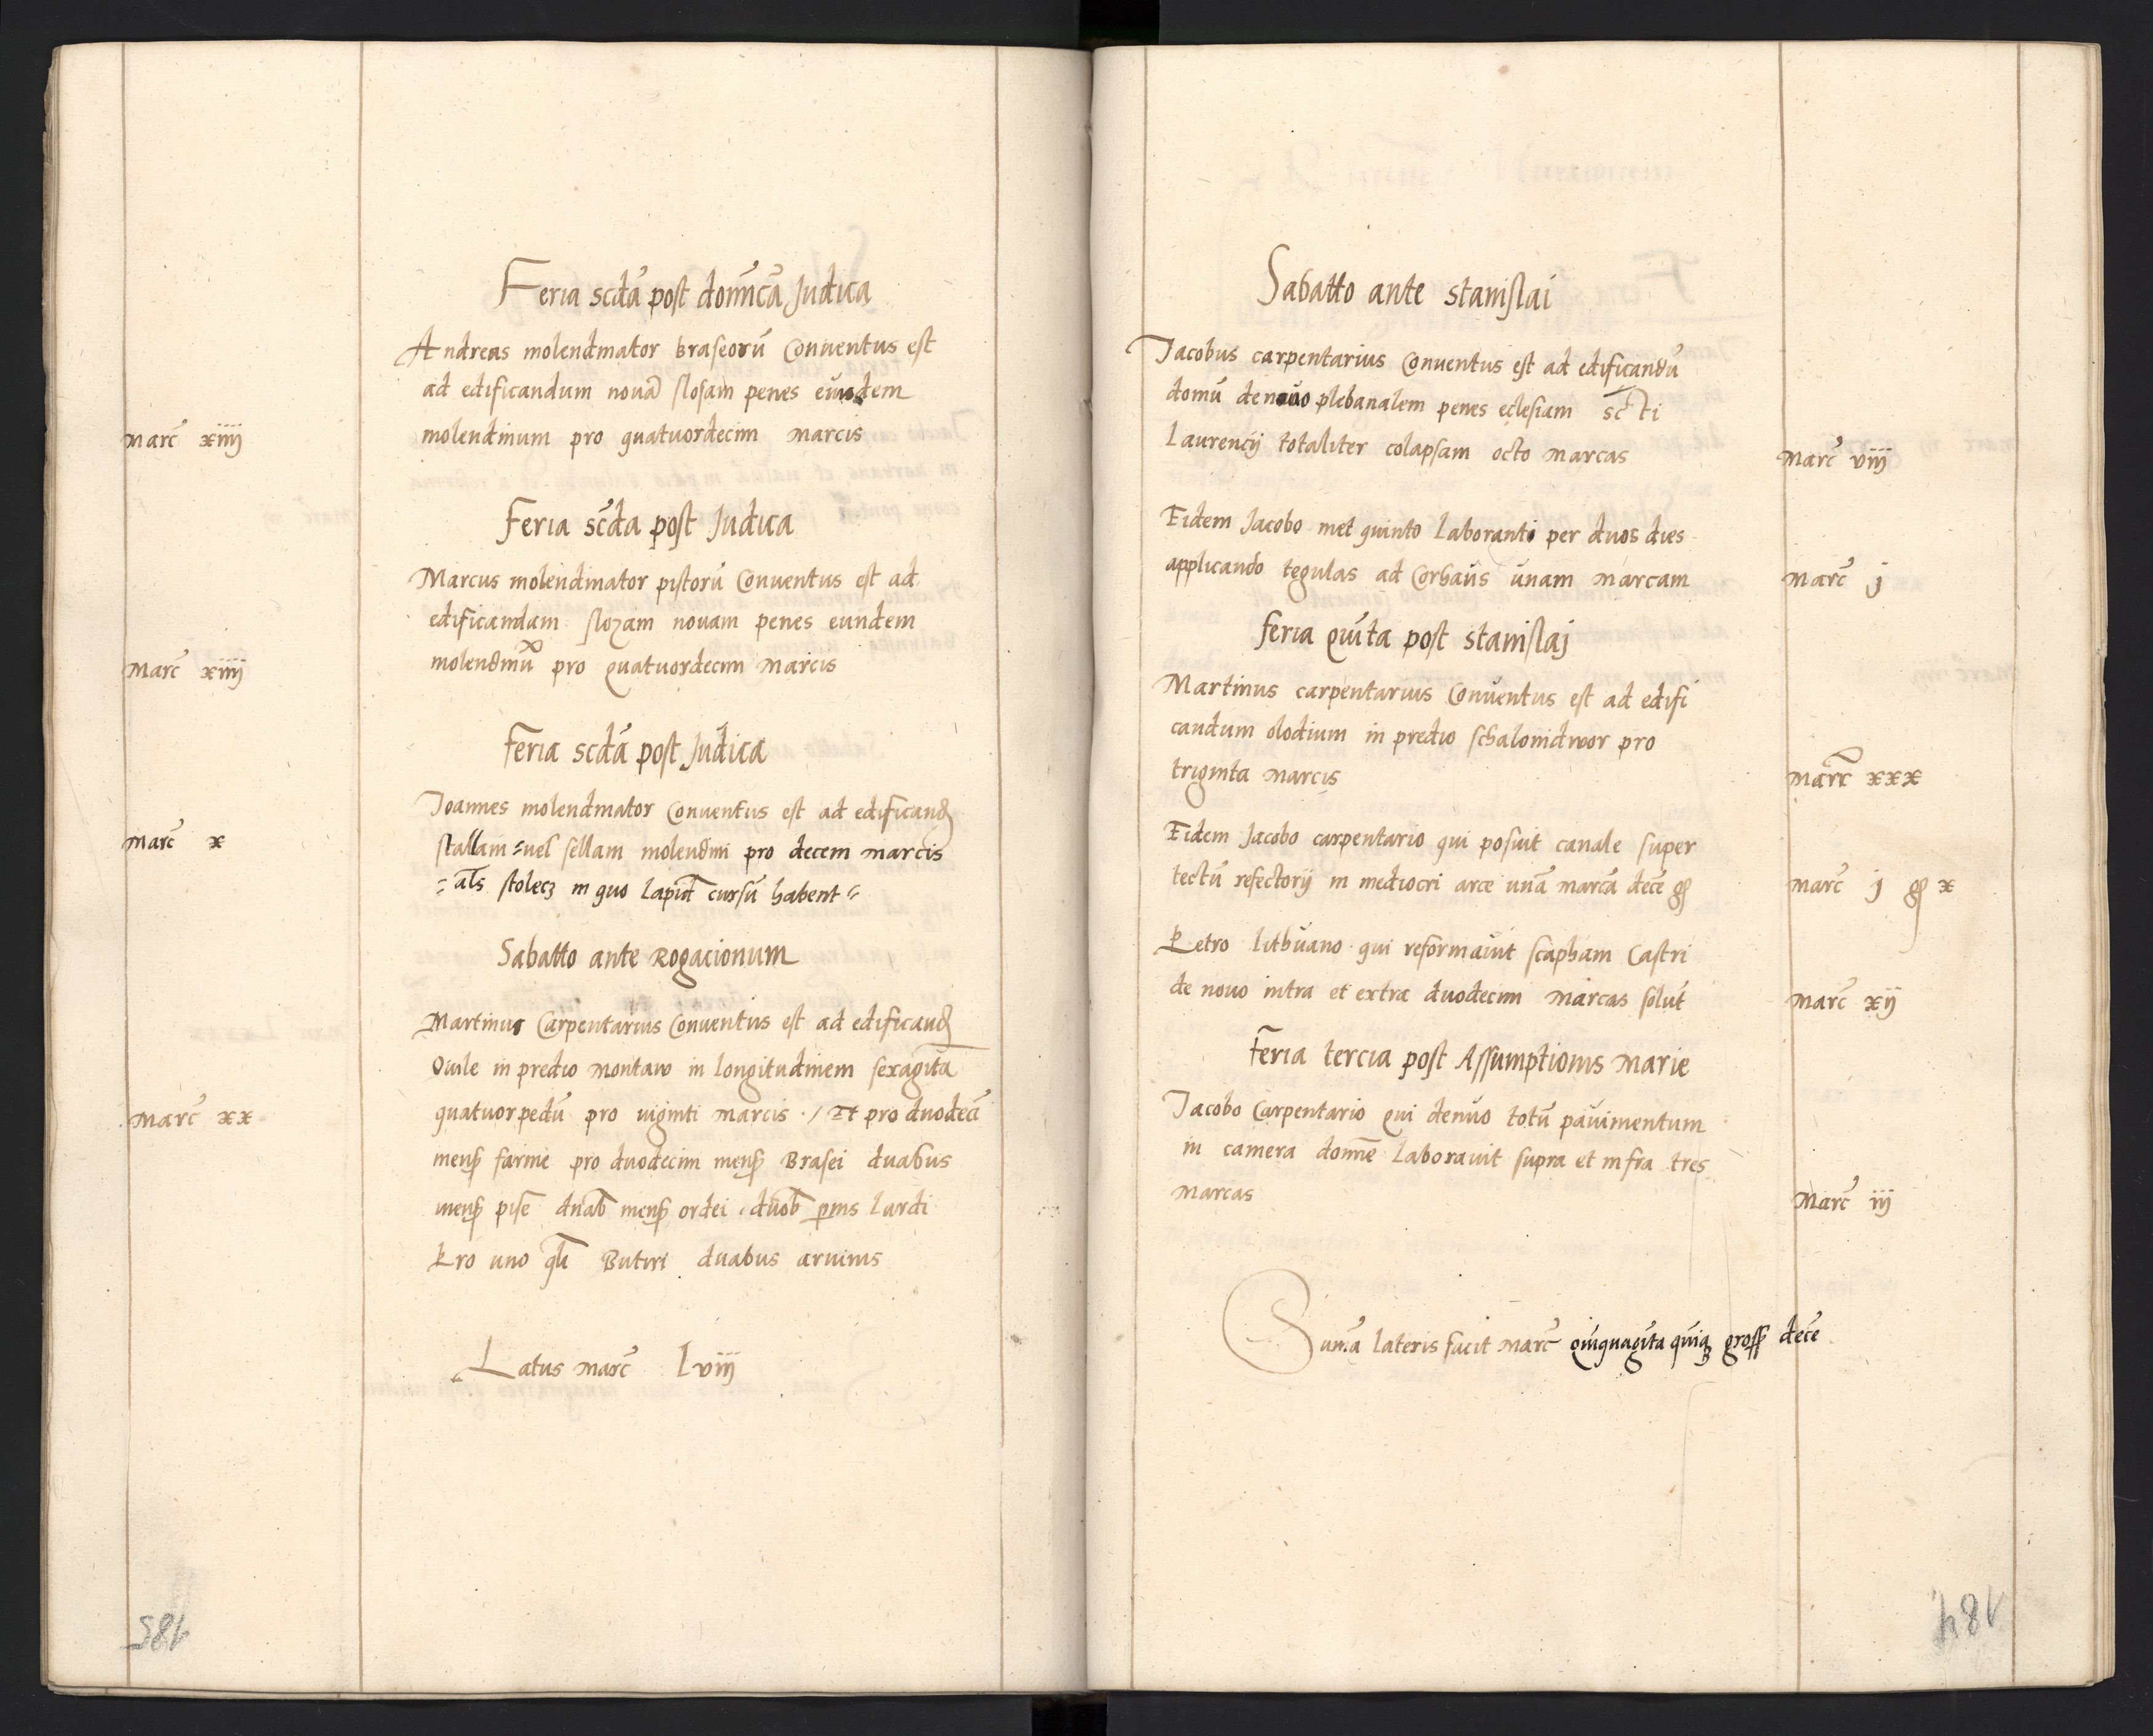 Feria scdã post domĩcã Judica
Andreas molendinator braseorũ Conuentus est
ad edificandum nouã slosam penes eundem
Marc̃ xiiij molendinum pro quatuordecim marcis
Feria sc̃da post Judica
Marcus molendinator pistorũ Conuentus est ad
edificandam slozam nouam penes eundem
Marc̃ xiiij molendinũ pro quatuordecim Marcis
feria scdã post Judica
Joannes molendinator Conuentus est ad edificand
Marc̃ x stallam = uel sellam molendini pro decem marcis
= als stolecz in quo lapid cursũ habent =
Sabatto ante Rogacionum
Martinus Carpentarius Conuentus est ad edificand
Ouile in predio Montaw in longitudinem sexagĩta
Marc̃ xx quatuor pedũ pro uiginti marcis ./ Et pro duodecĩ
mens farine pro duodecim mens Brasei duabus
mens pise duab mens ordei duob pms lardi
Pro uno Butiri duabus aruinis
Latus marc̃ Lviij
185
Sabatto ante stanislai
Jacobus carpentarius Conuentus est ad edificandũ
domũ denouo plebanalem penes eclesiam scti
Laurencij totaliter colapsam octo marcas Marc̃ viij
Eidem Jacobo met quinto laboranti per duos dies
applicando tegulas ad Corhaũs unam marcam Marc̃ j
feria quĩta post stanislaj
Martinus carpentarius Conuentus est ad edifi
candum olodium in predio schalonidwor pro
triginta marcis Marc̃ xxx
Eidem Jacobo carpentario qui posuit canale super
tectũ refectorij in mediocri arce unã marcã decẽ g Marc̃ j g x
Petro litbuano qui reformauit scapham Castri
de nouo intra et extra duodecim marcas soluit Marc̃ xij
feria tercia post Assumptionis Marie
Jacobo Carpentario qui denuo totũ pauimentum
in camera domne laborauit supra et infra tres
marcas Marc̃ iij
Sum̃a lateris facit marc̃ quĩquagĩta quĩqz gross decẽ
184